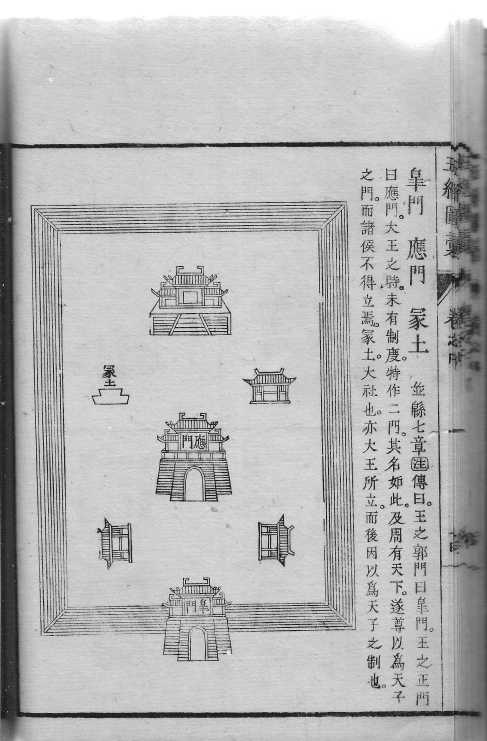 五經圖彙 卷之中
皐門 應門 冢土 並緜七章㊟傳曰。王之郭門曰皐門。王之正門
曰應門。大王之時。未有制度。特作二門。其名如此。及周有天下。遂尊以爲天子
之門。而諸侯不得立焉。冢土。大社也。亦大王所立。而後因以爲天子之制也。
冢土
應門
皐門